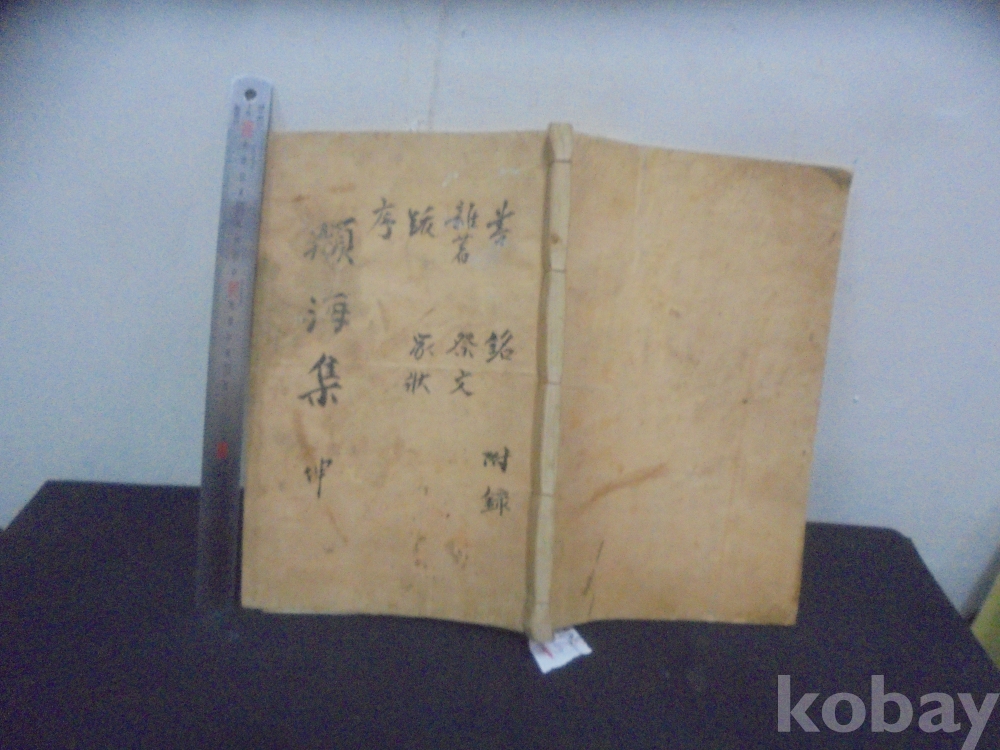 書 銘 附錄
雜著 祭文
跋 家狀
序
海集 坤
kobay